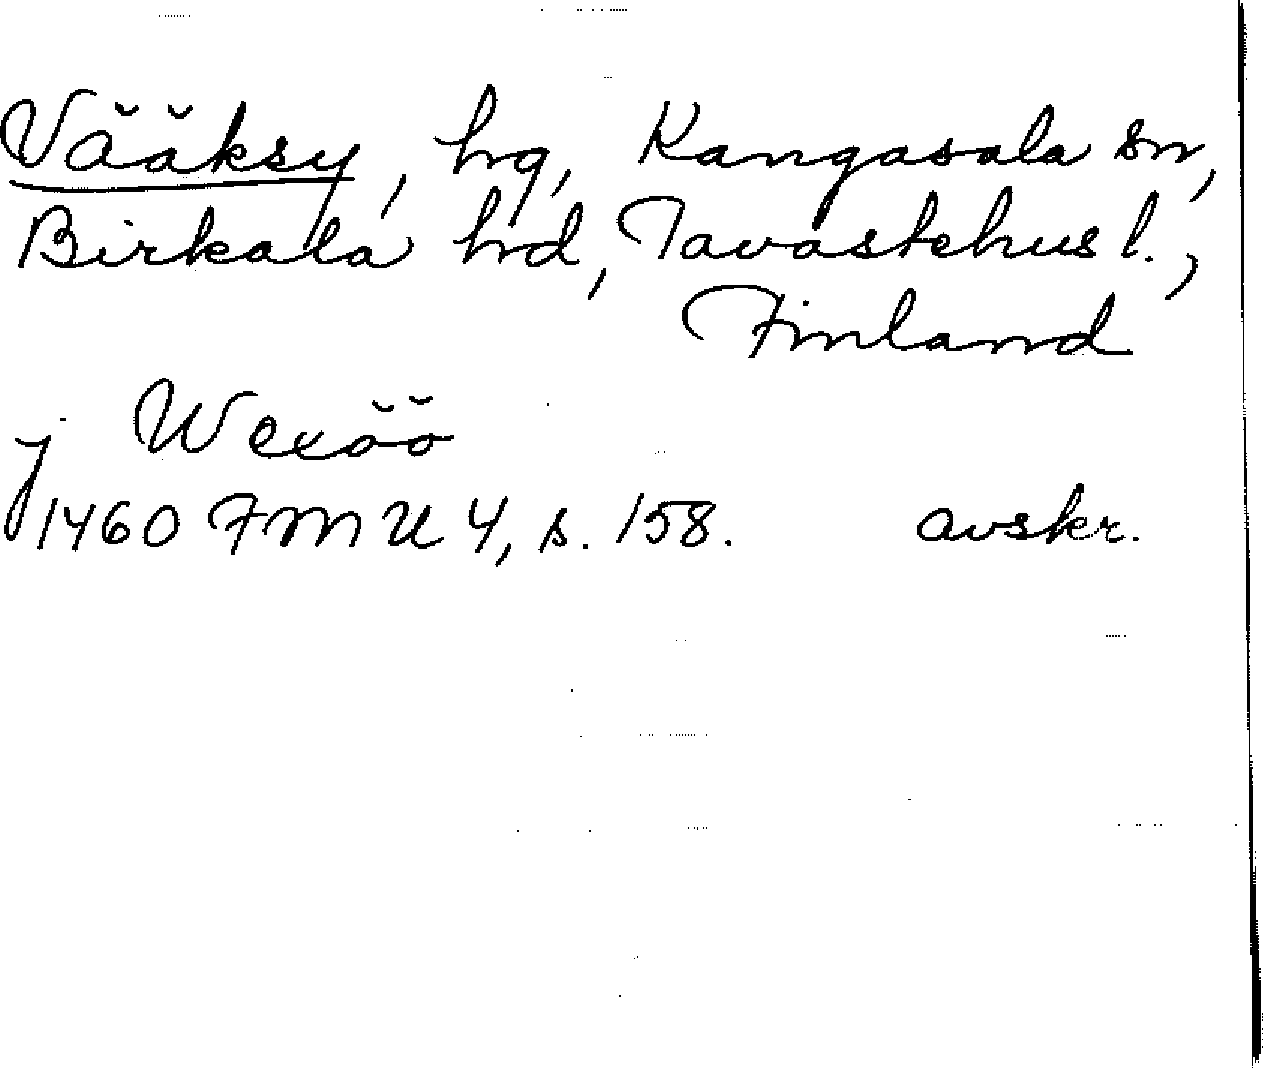 Vääksy, hg, Kangasala sn,
Birkala hd, Tavastehus l.,
Finland
j Wexöö
1460 FMU 4, s. 158. avskr.